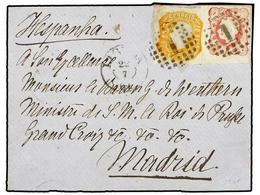 Hespanha.
A Son Excellence
Monsieur le Baron de Werthern
Ministre de S. M. le Roi de Prusse
Grand Croix &c. &c. &c.
Madrid.
22
7
1
1